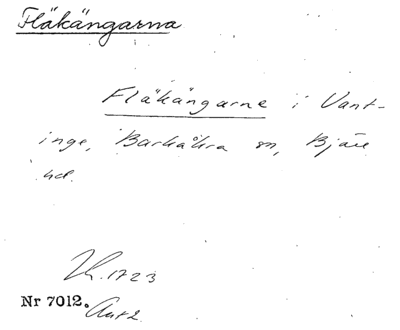 Fläkängarna
Fläkängarne i Vant-
inge, Barkåkra sn, Bjäre
hd.
1723
Nr 7012.